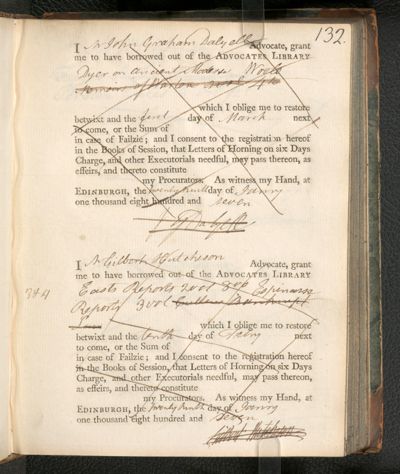 132.
I Mr John Graham Dalyell Advocate, grant
me to have borrowed out of the ADVOCATES LIBRARY
Dyer on ancient & Modern World
Memoirs of
which I oblige me to restore
betwixt and the first day of March next
to come, or the Sum of
in case of Failzie; and I consent to the registration hereof
in the Books of Session, that Letters of Horning on six Days
Charge, and other Executorials needful, may pass thereon, as
effeirs, and thereto constitute
my Procurators. As witness my Hand, at
EDINBURGH, the day of Janry
one thousand eight hundred and seven
I Mr Gilbert Hutcheson Advocate, grant
me to have borrowed out of the ADVOCATES LIBRARY
Easts Reports 2 vol 8vo Espinasse
Reports 3 vol
Law which I oblige me to restore
betwixt and the tenth day of next
to come, or the Sum of
in case of Failzie; and I consent to the registration hereof
in the Books of Session, that Letters of Horning on six Days
Charge, and other Executorials needful, may pass thereon,
as effeirs, and thereto constitute
my Procurators. As witness my Hand, at
EDINBURGH, the day of Janry
one thousand eight hundred and seven
Gilbert Hutcheson